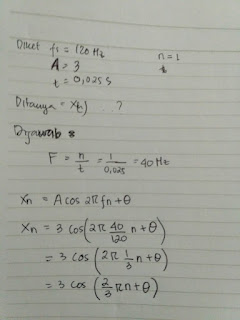 Diket fs = 120 Hz n = 1
A = 3
t = 0,025 s
Ditanya = X(t) ... ?
Dijawab :
F = n/t = 1/0,025 = 40 Hz
Xn = A cos 2π fn + θ
Xn = 3 cos (2π 40/120 n + θ)
= 3 cos (2π 1/3 n + θ)
= 3 cos (2/3 π n + θ)